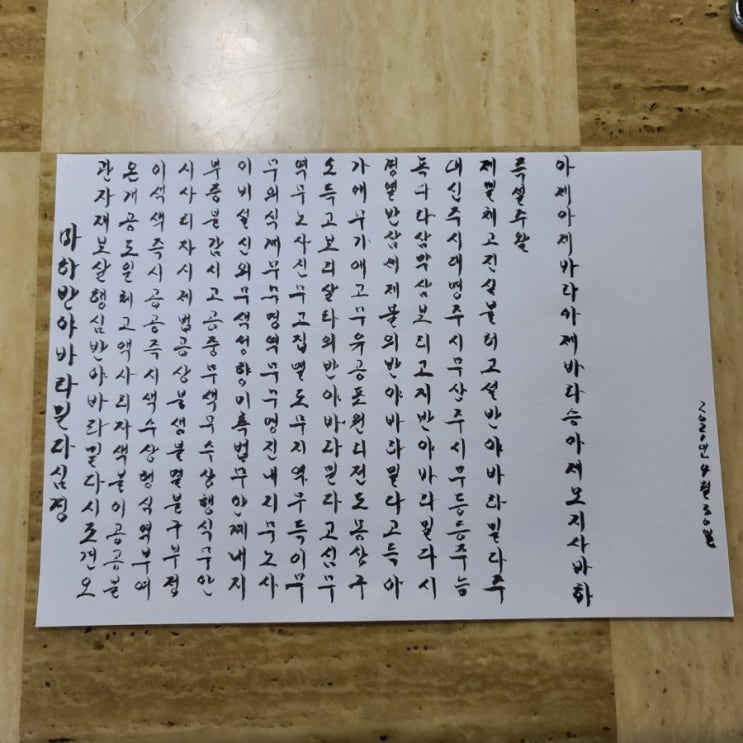 마하반야바라밀다심경
관자재보살행심반야바라밀다시조견오
온개공도일체고액사리자색불이공공불
이색색즉시공공즉시색수상행식역부여
시사리자시제법공상불생불멸불구부정
부증불감시고공중무색무수상행식무안
이비설신의무색성향미촉법무안계내지
무의식계무무명역무무명진내지무노사
역무노사진무고집멸도무지역무득이무
소득고보리살타의반야바라밀다고심무
가애무가애고무유공포원리전도몽상구
경열반삼세제불의반야바라밀다고득아
녹다라삼막삼보리고지반야바라밀다시
대신주시대명주시무상주시무등등주능
제일체고진실불허고설반야바라밀다주
즉설주왈
아제아제바라아제바라승아제모지사바하
2021년 4월 30일